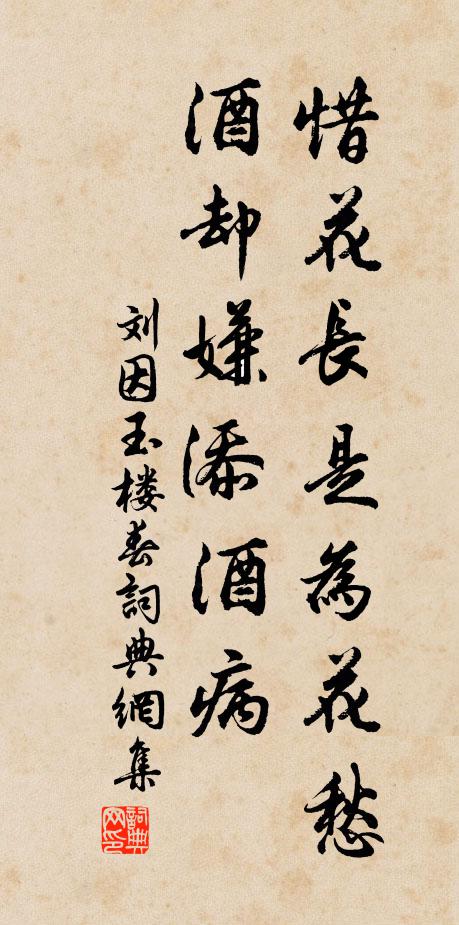 惜花長是為花愁
酒却嫌添酒病
刘因玉楼春詞典網集
詞典网印